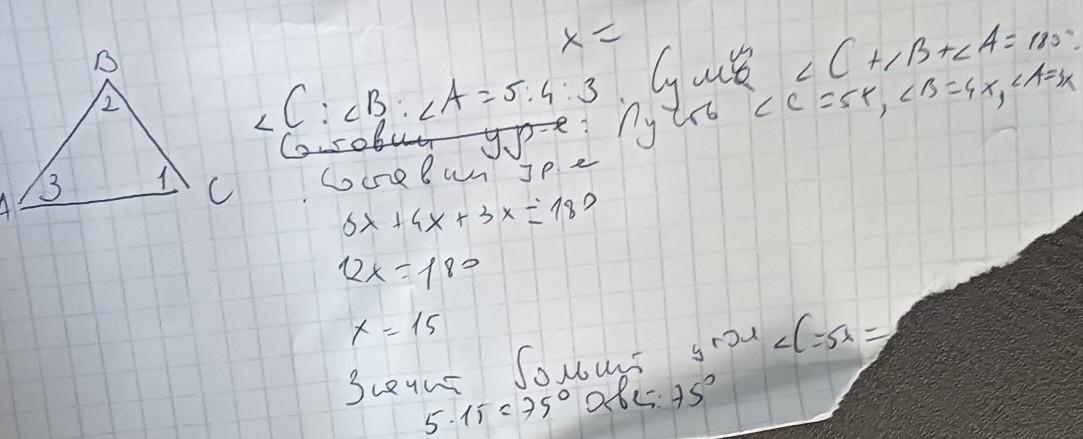 x =
B
2
A 3 1 C
∠C : ∠B : ∠A = 5:4:3. Сумма ∠C + ∠B + ∠A = 180°.
Составим ур-е: Пусть ∠C = 5x, ∠B = 4x, ∠A = 3x
Составим ур-е
5x + 4x + 3x = 180
12x = 180
x = 15
Значит больший угол ∠C = 5x =
5·15 = 75° Ответ: 75°